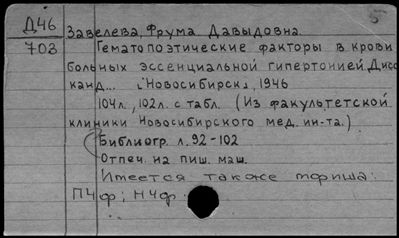 Д46
703
5
Завелева, Фрума Давыдовна.
Гематопоэтические факторы в крови
больных эссенциальной гипертонией. Дисс.
канд... Новосибирск, 1946
104л., 102л. с табл. (Из факультетской
клиники Новосибирского мед. ин-та.)
Библиогр. л. 92-102
Отпеч. на пиш. маш.
Имеется также
П4ф; Н4ф